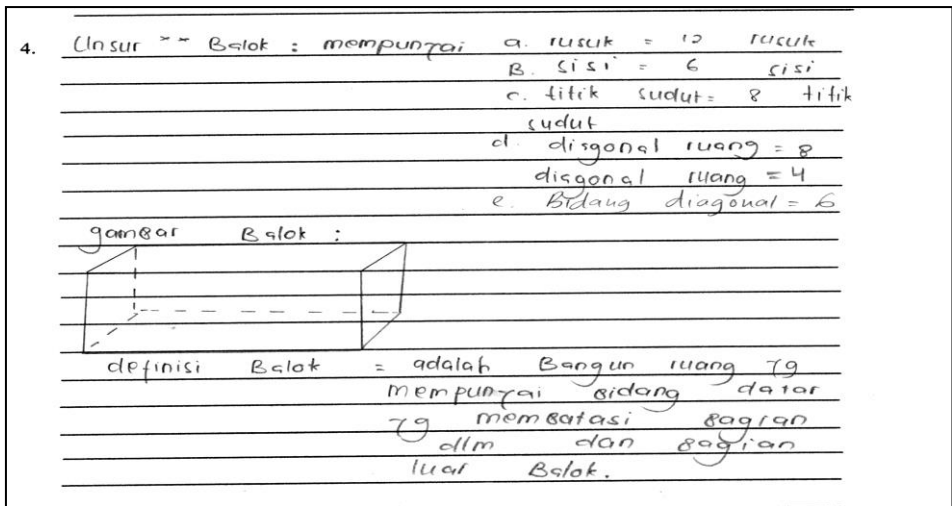 4. Unsur " Balok : mempunyai a. rusuk = 12 rusuk
B. sisi = 6 sisi
c. titik sudut = 8 titik
sudut
d. disgonal ruang = 8
diagonal ruang = 4
e. Bidang diagonal = 6
gambar Balok :
definisi Balok = adalah Bangun ruang yg
mempunyai bidang datar
yg membatasi bagian
dlm dan bagian
luar Balok.